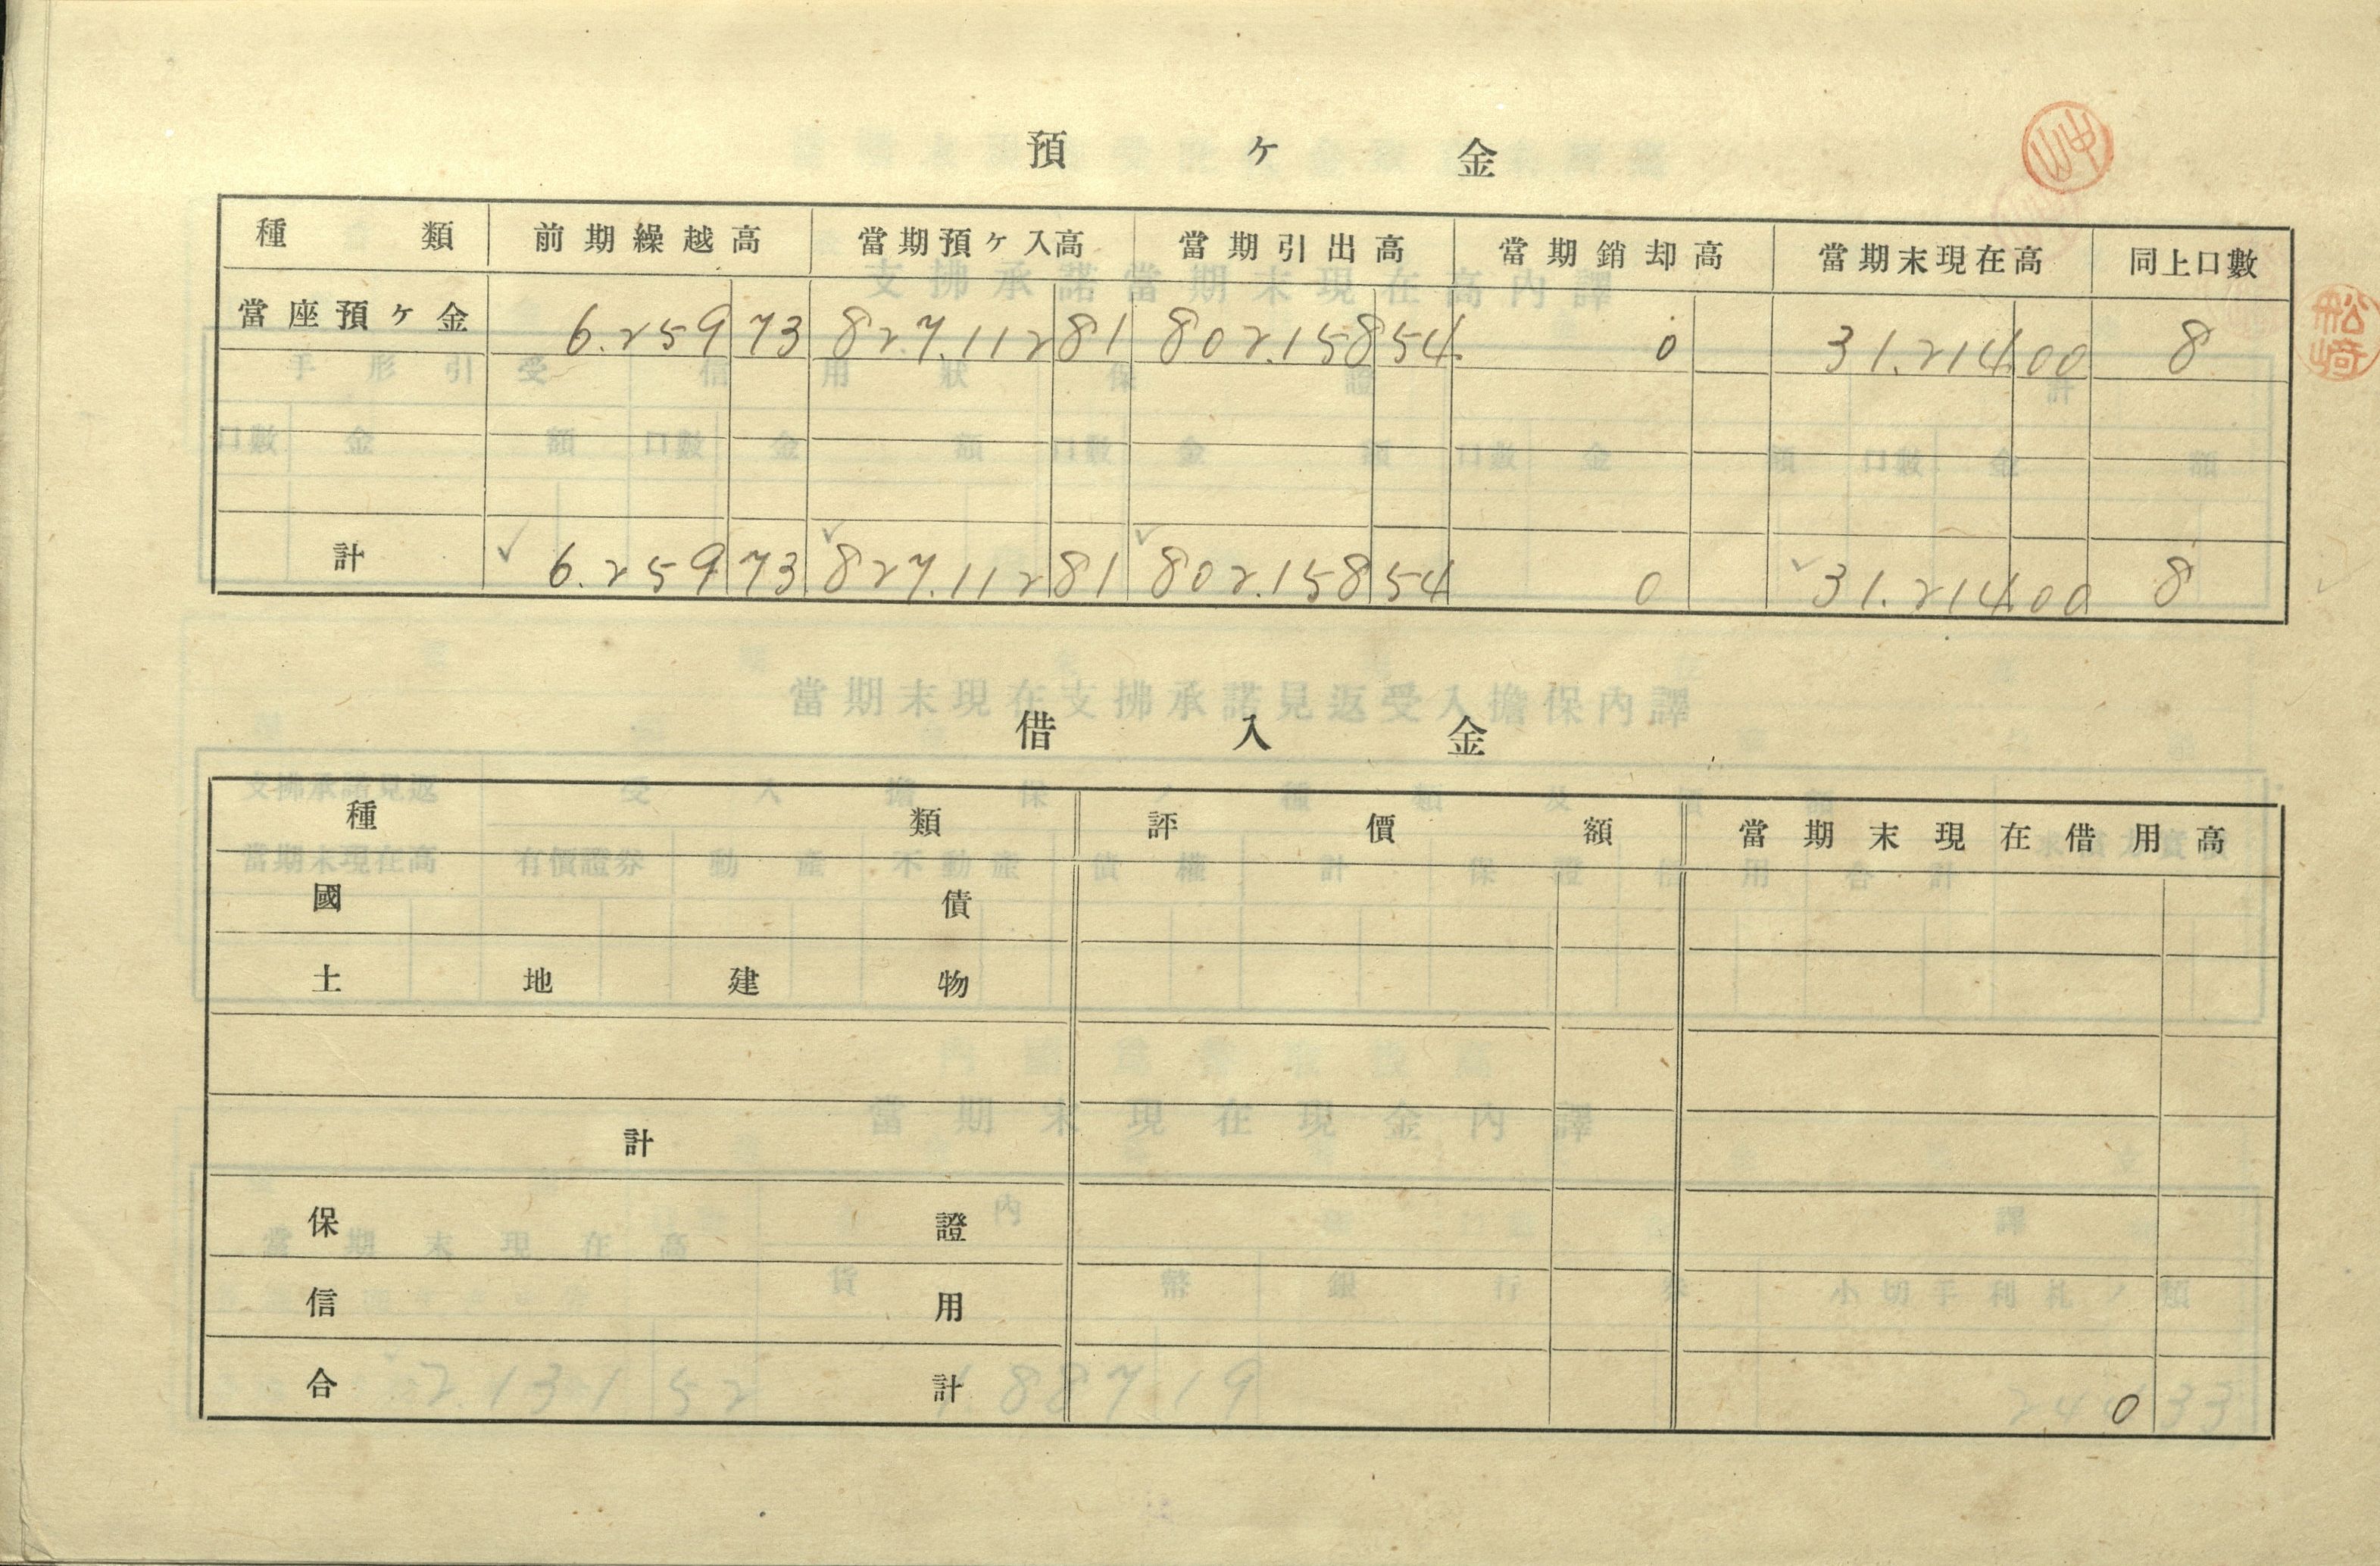 預ケ金
種類 前期繰越高 當期預ケ入高 當期引出高 當期銷却高 當期末現在高 同上口數
當座預ケ金 6.259 73 827.112 81 802.158 54 0 31.214 00 8
計 6.259 73 827.112 81 802.158 54 0 31.214 00 8
船崎
借入金
種類 評價額 當期末現在借用高
國債
土地建物
計
保證
信用
合計 0